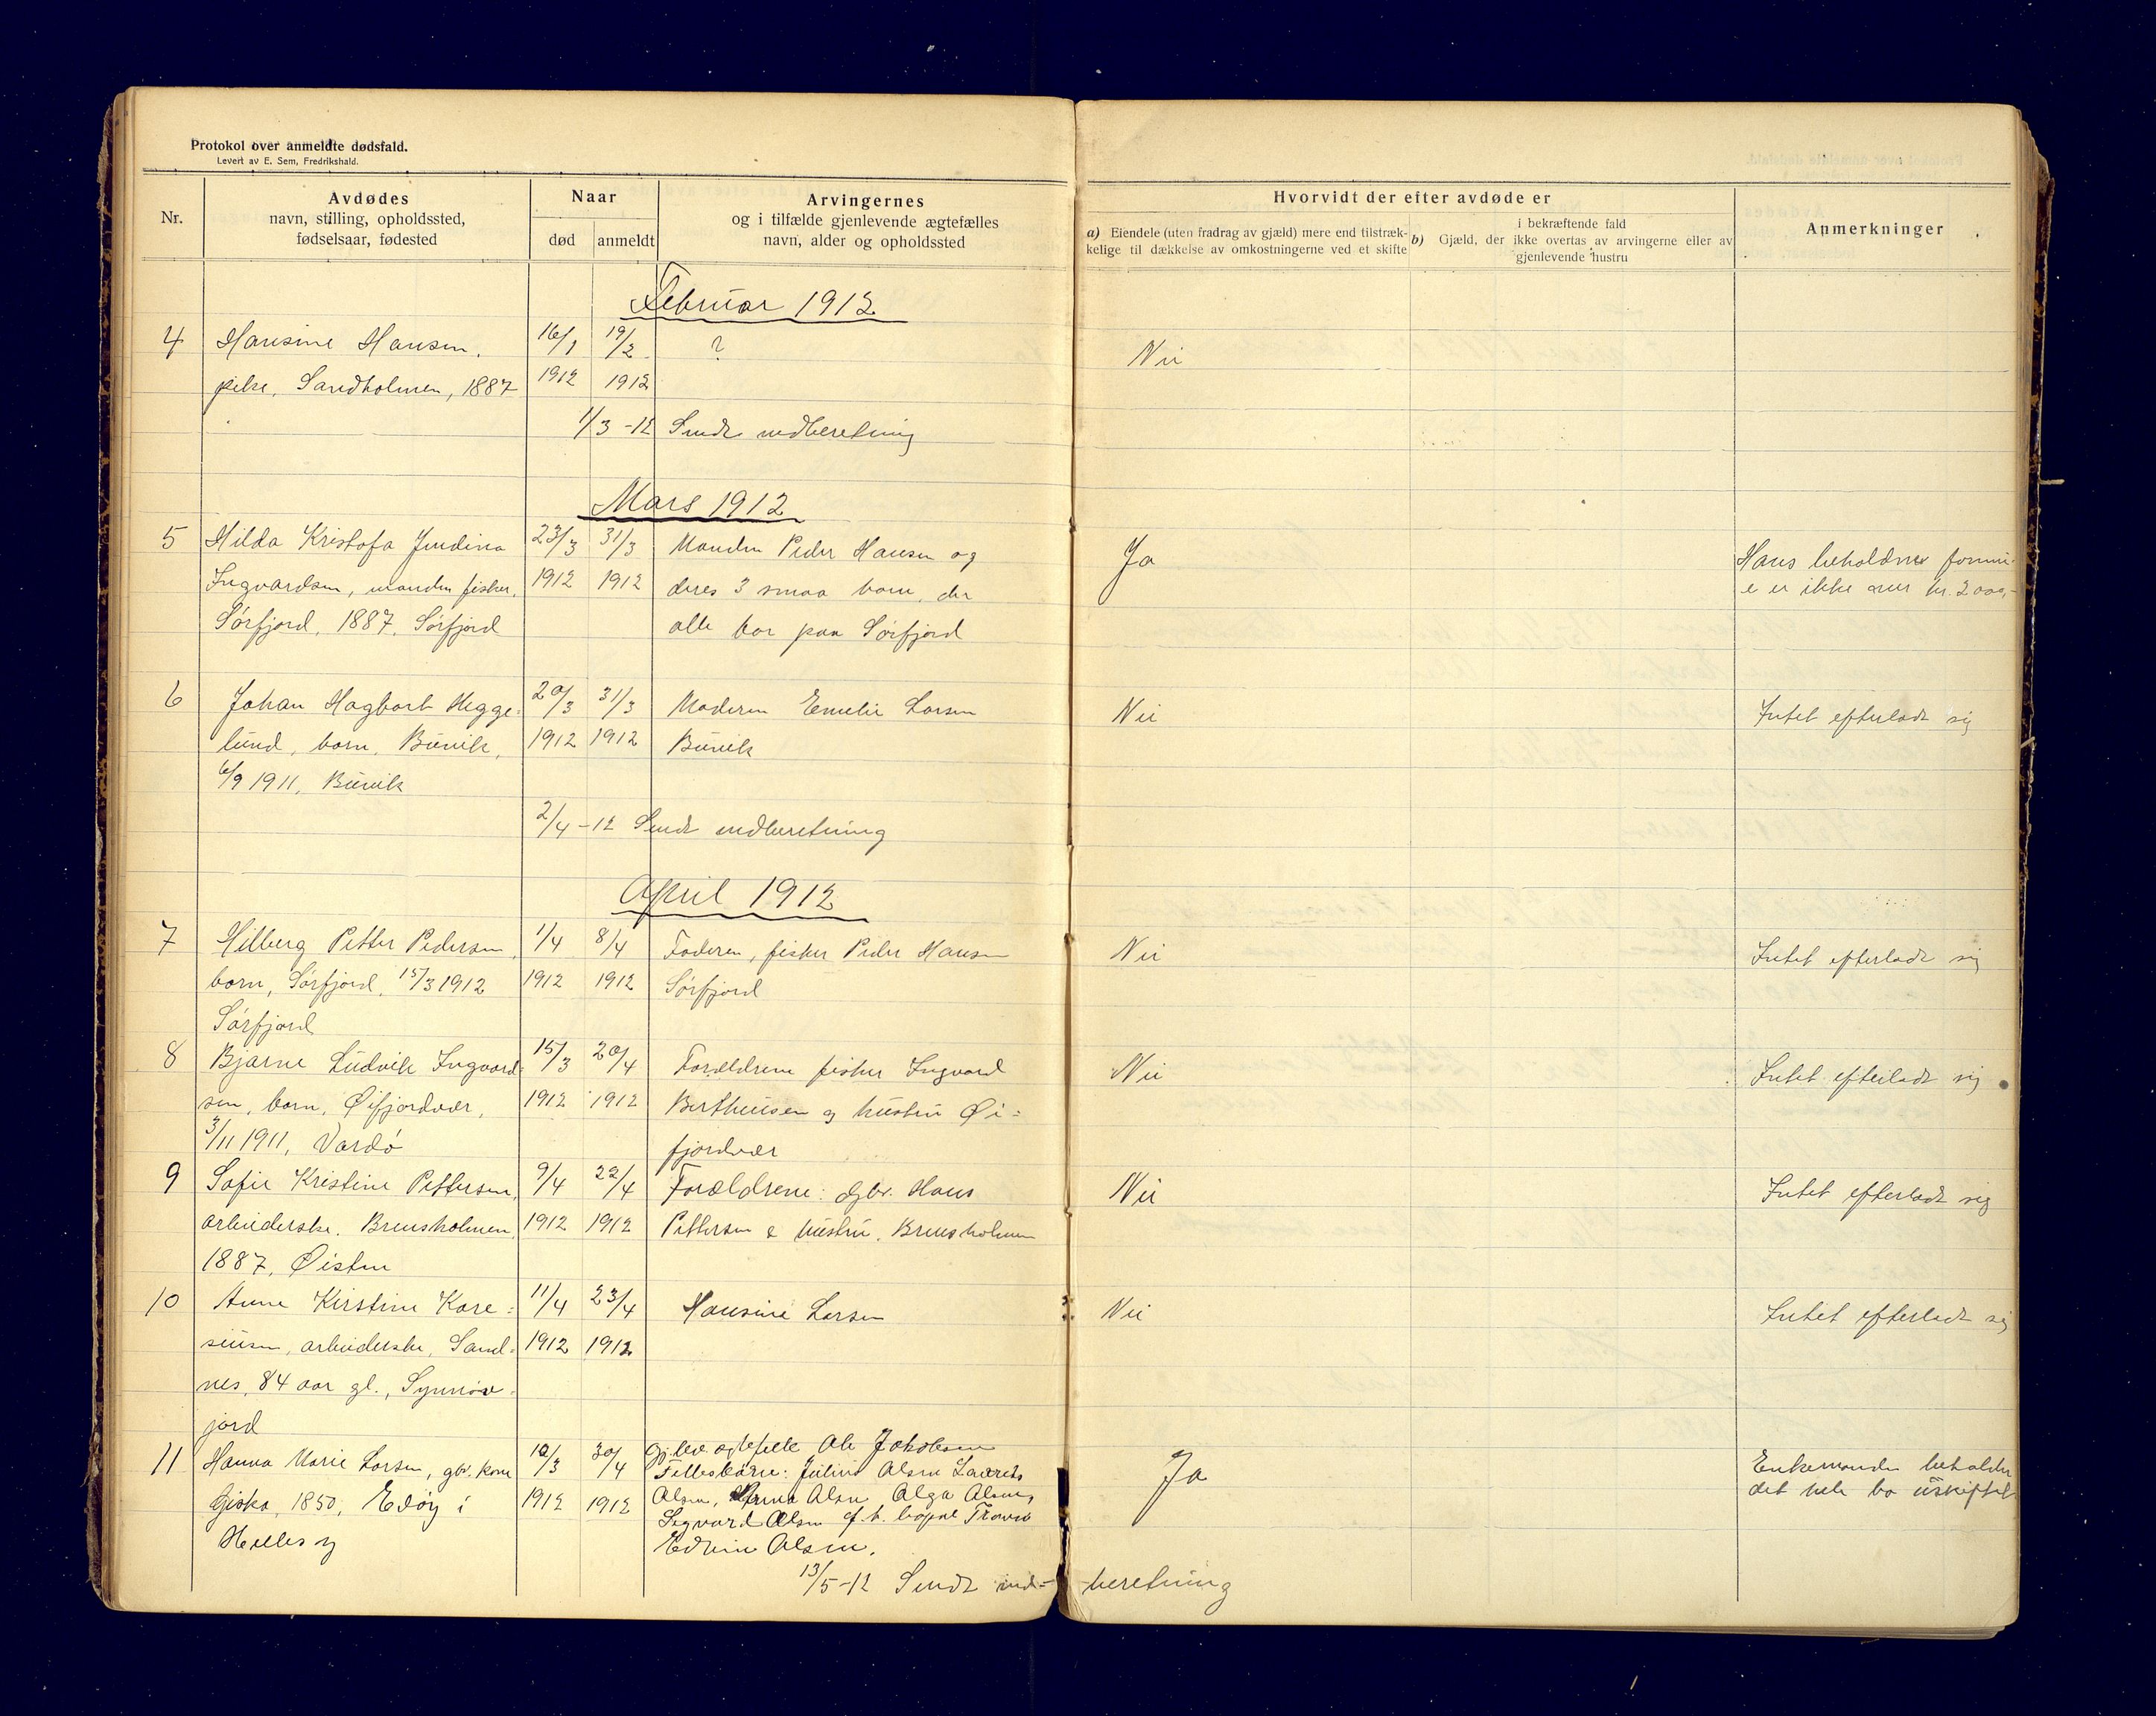 Protokol over anmeldte dødsfald.
Levert av E. Sem, Fredrikshald.
Nr.
Avdødes
navn, stilling, opholdssted,
fødselsaar, fødested
Naar
død
anmeldt
Arvingernes
og i tilfælde gjenlevende ægtefælles
navn, alder og opholdssted
Hvorvidt der efter avdøde er
a) Eiendele (uten fradrag av gjæld) mere end tilstræk-
kelige til dækkelse av omkostningerne ved et skifte
i bekræftende fald
b) Gjæld, der ikke overtas av arvingerne eller av
gjenlevende hustru
Anmerkninger
Februar 1912
4 Hansine Hansen. 16/1 19/2 ? Nei
pike, Sandholmen, 1887 1912 1912
1/3 -12 Sendt indberetning
Mars 1912
5 Hilda Kristofa Jendina 23/3 31/3 Manden Peder Hansen og Ja Hans beholdne formu-
Ingvardsen, manden fisker, 1912 1912 deres 3 smaa barn, der e er ikke over kr. 2000,-
Sørfjord, 1887, Sørfjord alle bor paa Sørfjord
6 Johan Hagbart Hegge= 20/3 31/3 Moderen Emelie Larsen Nei Intet efterladt sig
lund, barn, Buvik, 1912 1912 Buvik
6/9 1911, Buvik
2/4 -12 Sendt indberetning
April 1912
7 Hilberg Petter Pedersen, 1/4 8/4 Faderen, fisker Peder Hansen Nei Intet efterladt sig
barn, Sørfjord, 15/3 1912 1912 1912 Sørfjord
Sørfjord
8 Bjarne Ludvik Ingvard= 15/3 20/4 Forældrene fisker Ingvard Nei Intet efterladt sig
sen, barn, Øifjordvær, 1912 1912 Bertheusen og hustru Øi=
3/11 1911, Vardø fjordvær
9 Sofie Kristine Pettersen, 9/4 22/4 Forældrene: gbr. Hans Nei Intet efterladt sig
arbeiderske. Brensholmen, 1912 1912 Pettersen & hustru. Brensholmen
1887, Øisten
10 Anne Kirstine Kare= 11/4 23/4 Hansine Larsen Nei Intet efterladt sig
seusen, arbeiderske, Sand= 1912 1912
nes, 84 aar gl.,
jord
11 Hanna Marie Larsen, gbr. kone 10/3 30/4 Gj.lev. egtefelle Ole Jakobsen Ja Enkemanden beholder
Gjeska, 1850, Edøy i 1912 1912 Fellesbarn: Julius Olsen Laurits det hele bo uskiftet
Hellesy Olsen, Anna Olsen Olga Olsen,
Sigvard Olsen
Edvin Olsen.
13/5 -12 Sendt ind= beretning